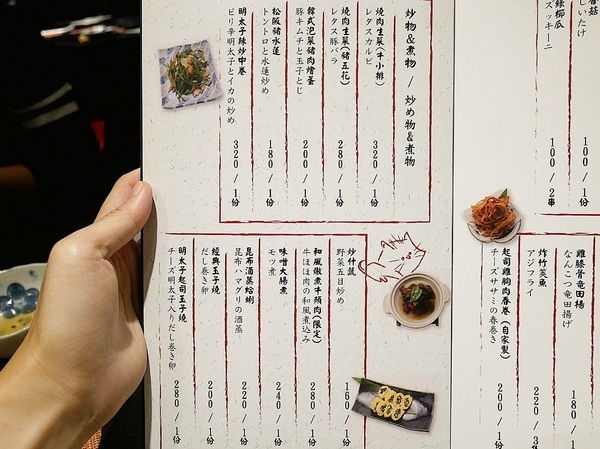 香菇
しいたけ
100/1份
綠櫛瓜
ズッキーニ
100/2串
雞膝骨竜田揚
なんこつ竜田揚げ
180/1
炸竹筴魚
アジフライ
220/3
起司雞胸肉春卷(自家製)
チーズササミの春巻き
200/1份
炒物&煮物 / 炒め物&煮物
燒肉生菜(牛小排)
レタスカルビ
320/1份
燒肉生菜(豬五花)
レタス豚バラ
280/1份
韓式泡菜豬肉燴蛋
豚キムチと玉子とじ
200/1份
松阪豬水蓮
トントロと水蓮炒め
180/1份
明太子辣炒中卷
ピリ辛明太子とイカの炒め
320/1份
炒什蔬
野菜五目炒め
160/1份
和風燉煮牛頰肉(限定)
牛ほほ肉の和風煮込み
280/1份
味噌大腸煮
モツ煮
240/1份
昆布酒蒸蛤蜊
昆布ハマグリの酒蒸
220/1份
經典玉子燒
だし巻き卵
200/1份
明太子起司玉子燒
チーズ明太子入りだし巻き卵
280/1份